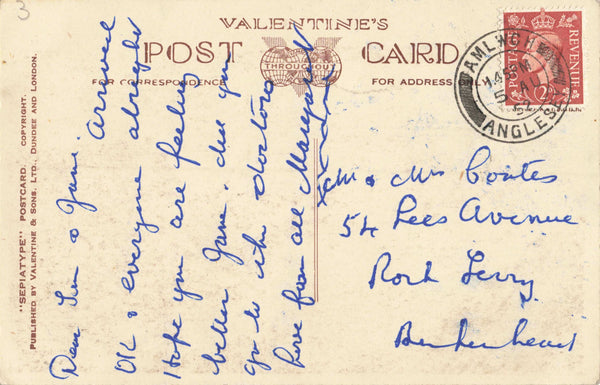 3
VALENTINE'S
POST CARD
THROUGHOUT
FOR CORRESPONDENCE
FOR ADDRESS
"SEPIATYPE" POSTCARD. COPYRIGHT.
PUBLISHED BY VALENTINE & SONS. LTD., DUNDEE AND LONDON.
Dear & June. Arrived
OK & everyone alright
Hope you are feeling
better June, dese you
go to the doctors
love from all Margaret
POSTAGE REVENUE
ANGLESEY
Mr & Mrs Coates
54 Lees Avenue
Rock Ferry
Birkenhead